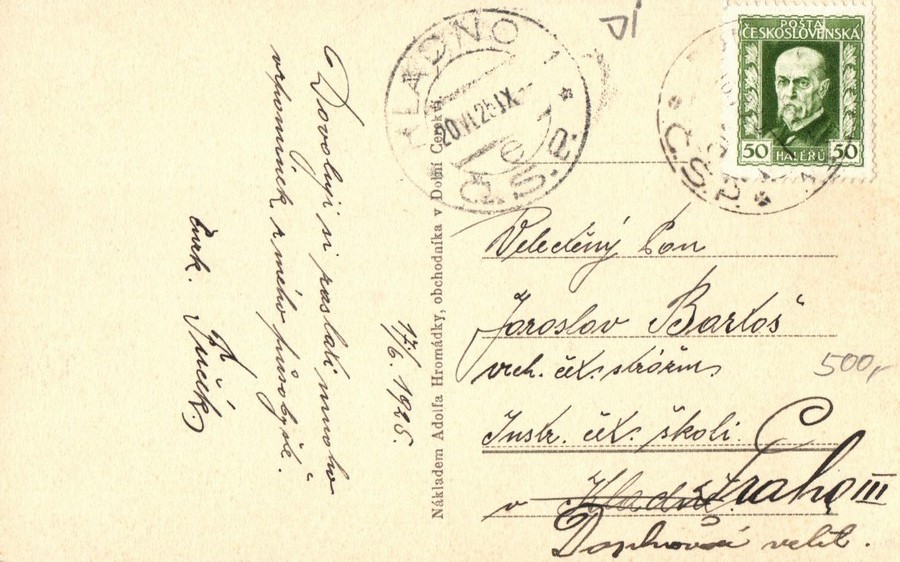 Dovoluji si zaslati mnoho
vzpomínek z mého působiště.
Jureček
17/6. 1925.
Nákladem Adolfa Hromádky, obchodníka v Dolní Cerekvi.
KLADNO 1
20.VI.25.IX
e
Č.S.P.
Č.S.P.
POŠTA
ČESKOSLOVENSKÁ
50 HALÉŘŮ 50
Veleděný Pan
Jaroslav Bartoš
vrch. čet. strážm.
Instr. čet. školi
v Kladně Praha III
Doplňovací velit.
500,-